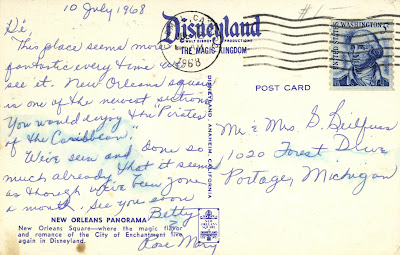 #1
10 July 1968
Hi,
This place seems more
fantastic every time we
see it. New Orleans square
is one of the newest sections
You would enjoy the "Pirates
of the Caribbean".
We've seen and done so
much already that it seems
as though we've been gone
a month. See you soon
Betty
?
Rose Mary
NEW ORLEANS PANORAMA
New Orleans Square—where the magic flavor
and romance of the City of Enchantment live
again in Disneyland.
Disneyland
WALT DISNEY PRODUCTIONS
THE MAGIC KINGDOM
CAL
1968
DISNEYLAND ANAHEIM, CALIFORNIA
WASHINGTON
UNITED STATES
5c
POST CARD
Mr & Mrs. G. Beilfuss
1020 Forest Drive
Portage, Michigan